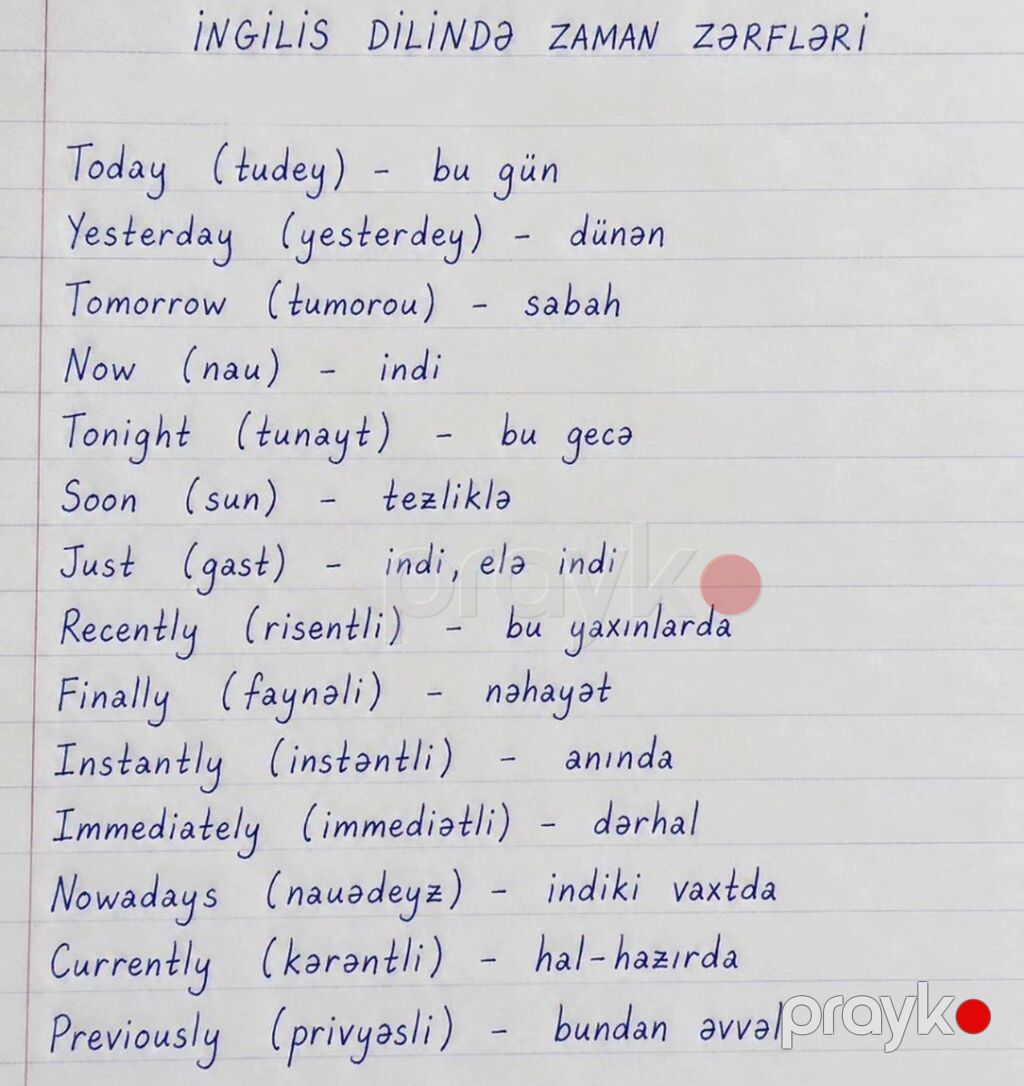 İNGİLİS DİLİNDƏ ZAMAN ZƏRFLƏRİ
Today (tudey) - bu gün
Yesterday (yesterdey) - dünən
Tomorrow (tumorou) - sabah
Now (nau) - indi
Tonight (tunayt) - bu gecə
Soon (sun) - tezliklə
Just (gast) - indi, elə indi
prayk
Recently (risentli) - bu yaxınlarda
Finally (faynəli) - nəhayət
Instantly (instəntli) - anında
Immediately (immediətli) - dərhal
Nowadays (nauədeyz) - indiki vaxtda
Currently (kərəntli) - hal-hazırda
Previously (privyəsli) - bundan əvvəl
prayk